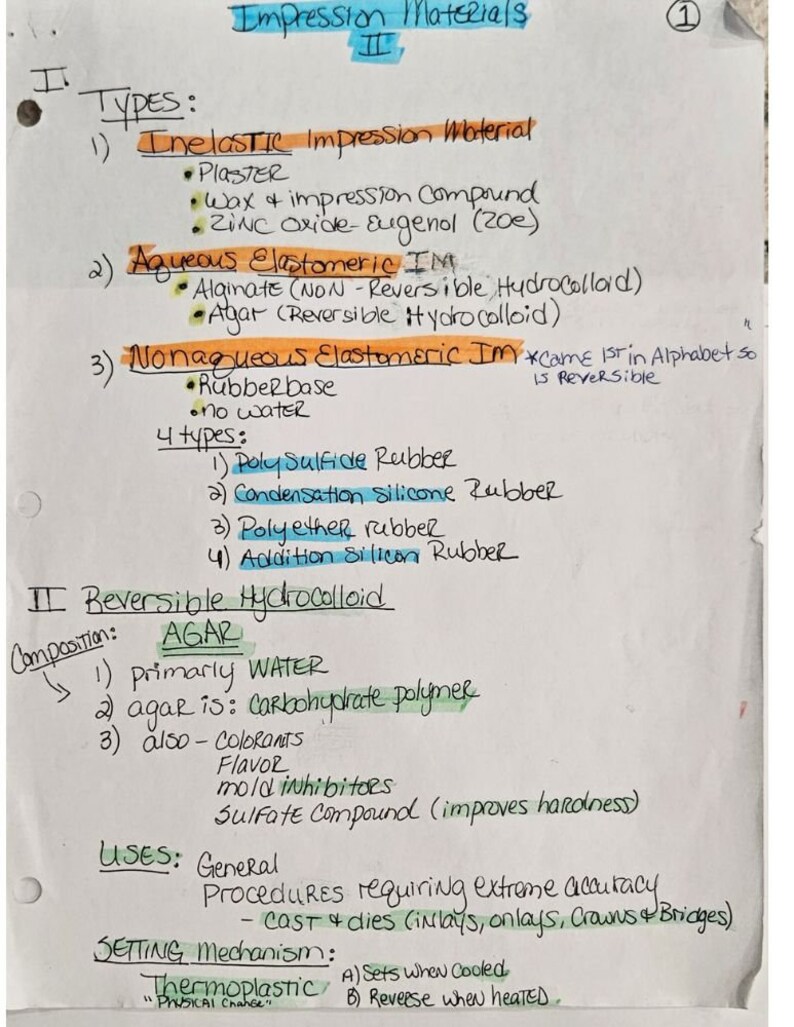 Impression Materials
II
1
I.
TYPES:
1) Inelastic Impression Material
• Plaster
• Wax & impression Compound
• Zinc Oxide-Eugenol (ZOe)
2) Aqueous Elastomeric IM
• Alginate (NON-Reversible Hydrocolloid)
• Agar (Reversible Hydrocolloid)
3) Nonaqueous Elastomeric IM *Came 1st in Alphabet so
is Reversible
• Rubberbase
• no water
4 types:
1) Polysulfide Rubber
2) Condensation silicone Rubber
3) Polyether rubber
4) Addition Silicon Rubber
II Reversible Hydrocolloid
Composition: AGAR
1) primarly WATER
2) agar is: carbohydrate polymer
3) also - Colorants
Flavor
mold inhibitors
Sulfate Compound (improves hardness)
USES: General
Procedures requiring extreme accuracy
- cast & dies (inlays, onlays, Crowns & Bridges)
SETTING Mechanism:
Thermoplastic A) Sets when Cooled
"Physical Change" B) Reverse when heated.